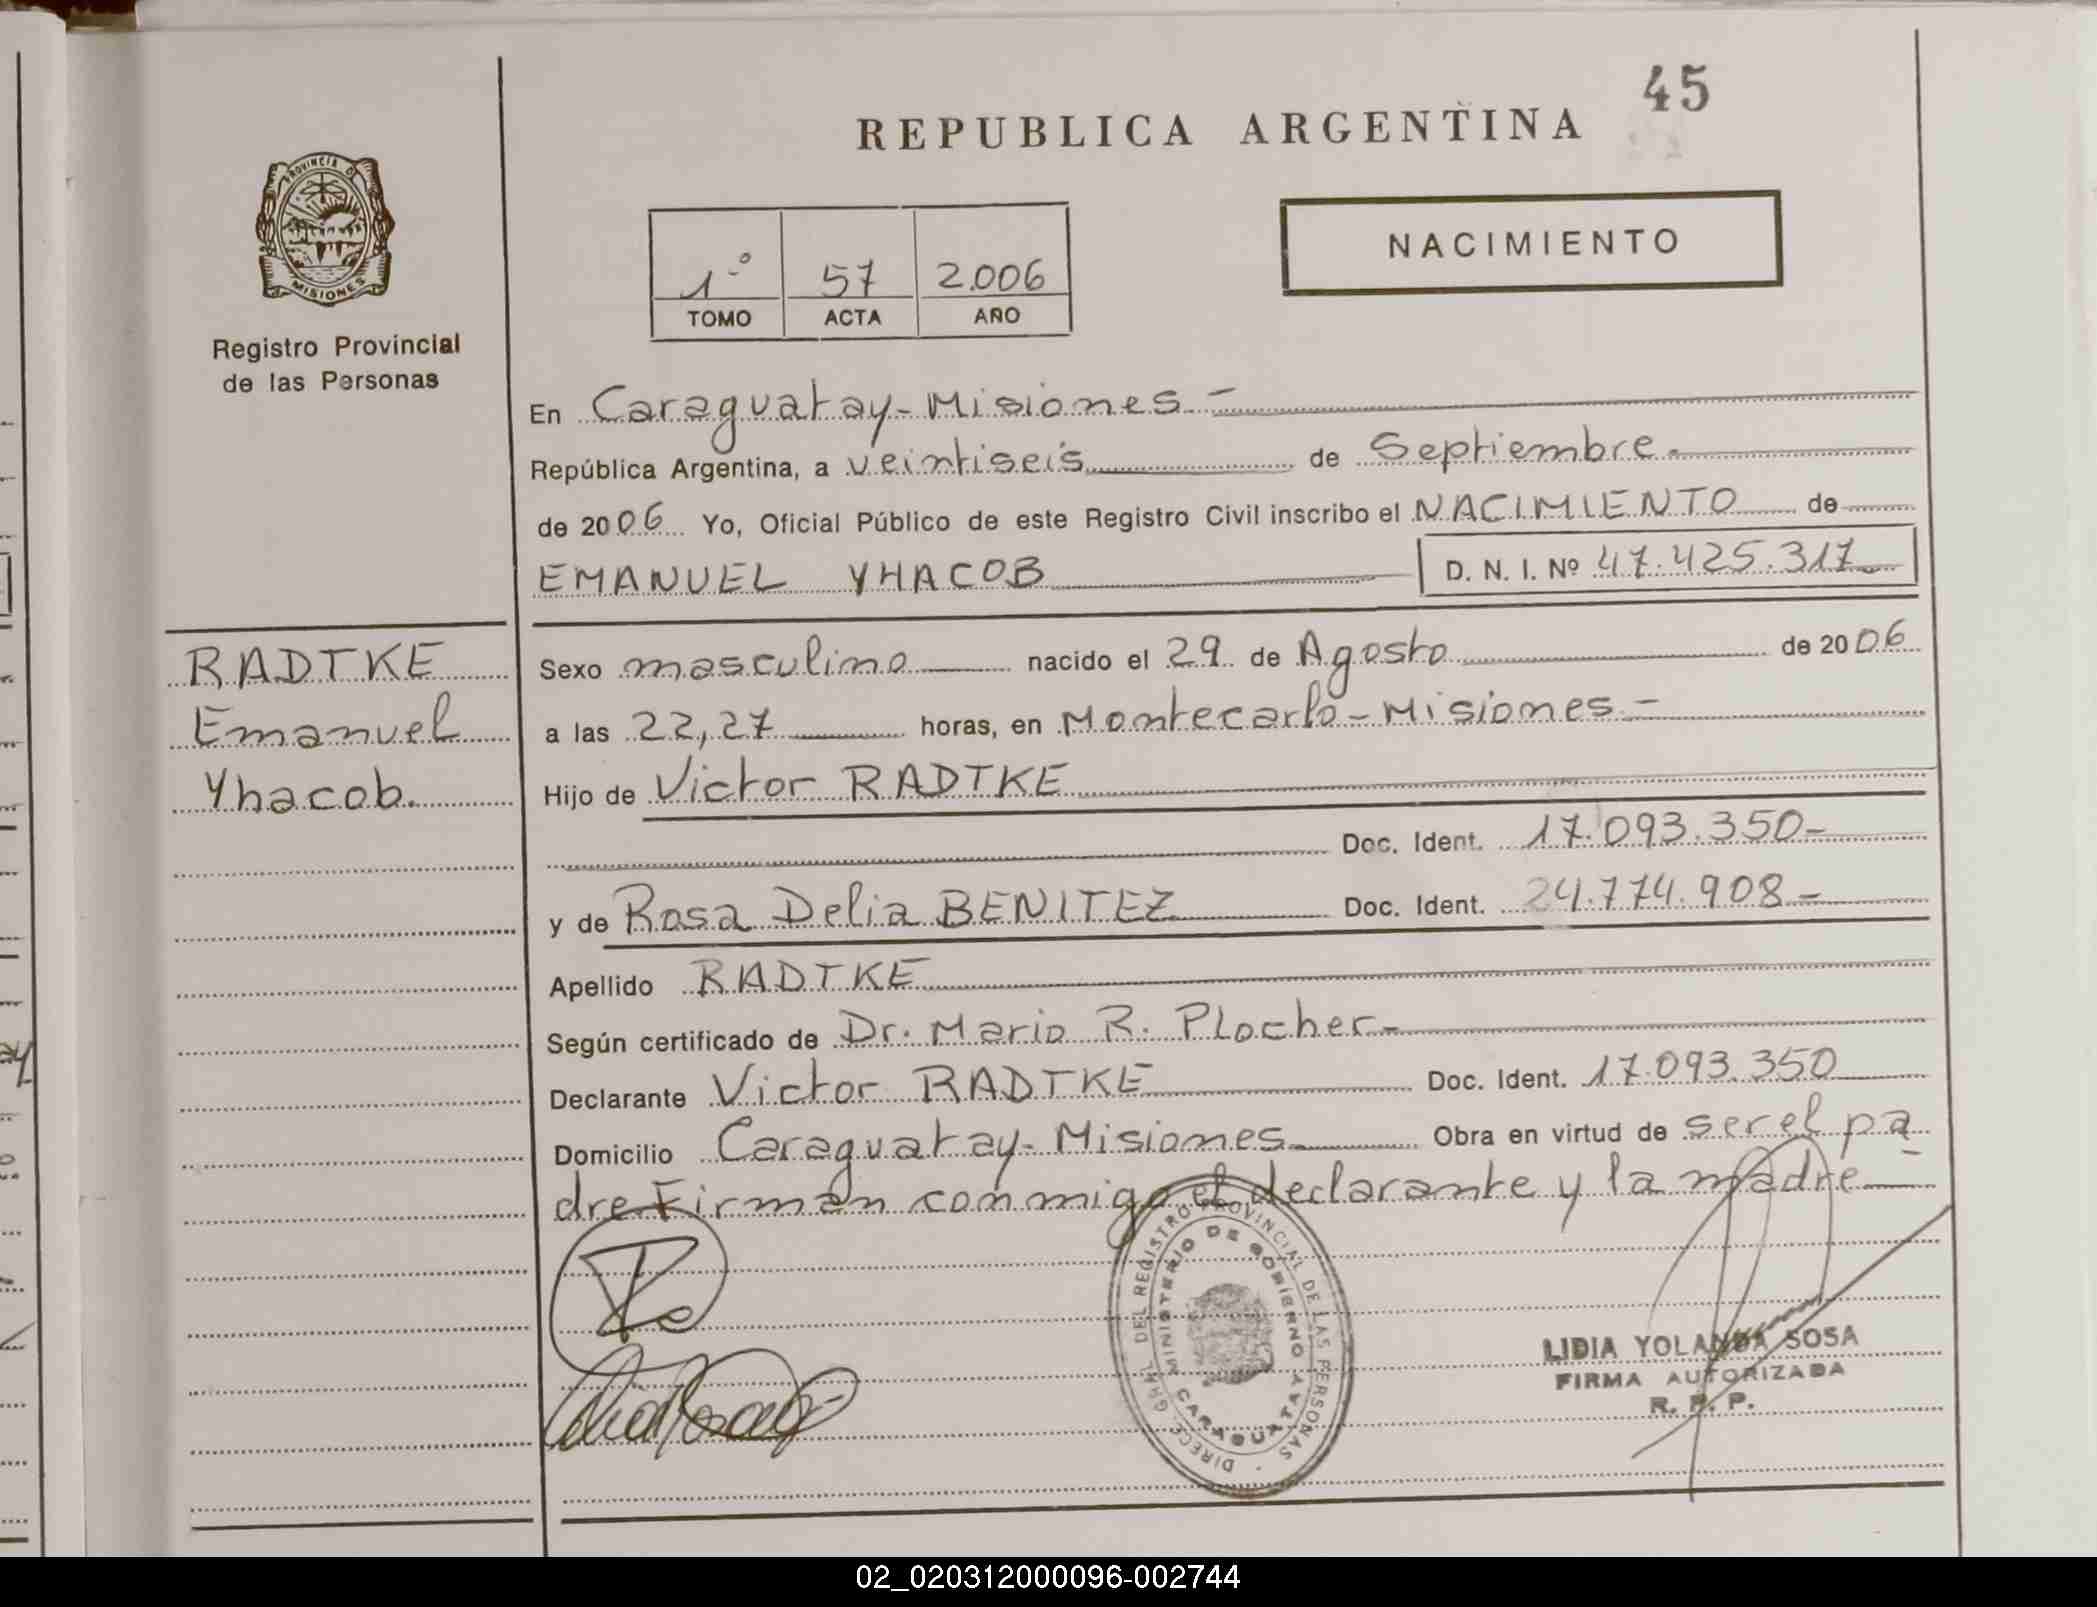 45
REPUBLICA ARGENTINA
PROVINCIA DE
MISIONES
Registro Provincial
de las Personas
1º 57 2.006
TOMO ACTA AÑO
NACIMIENTO
En Caraguatay - Misiones -
República Argentina, a veintiseis de Septiembre.
de 2006 Yo, Oficial Público de este Registro Civil inscribo el NACIMIENTO de
EMANUEL YHACOB D. N. I. Nº 47.425.317
RADTKE
Emanuel
Yhacob.
Sexo masculino nacido el 29 de Agosto de 2006
a las 22,27 horas, en Montecarlo - Misiones -
Hijo de Victor RADTKE
Doc. Ident. 17.093.350-
y de Rosa Delia BENITEZ Doc. Ident. 24.774.908-
Apellido RADTKE
Según certificado de Dr. Mario R. Plocher-
Declarante Victor RADTKE Doc. Ident. 17.093.350
Domicilio Caraguatay - Misiones Obra en virtud de ser el pa
dre Firman conmigo el declarante y la madre-
DIREC. GRAL. DEL REGISTRO PROVINCIAL DE LAS PERSONAS
MINISTERIO DE GOBIERNO
CARAGUATAY
LIDIA YOLANDA SOSA
FIRMA AUTORIZADA
R. P. P.
02_020312000096-002744